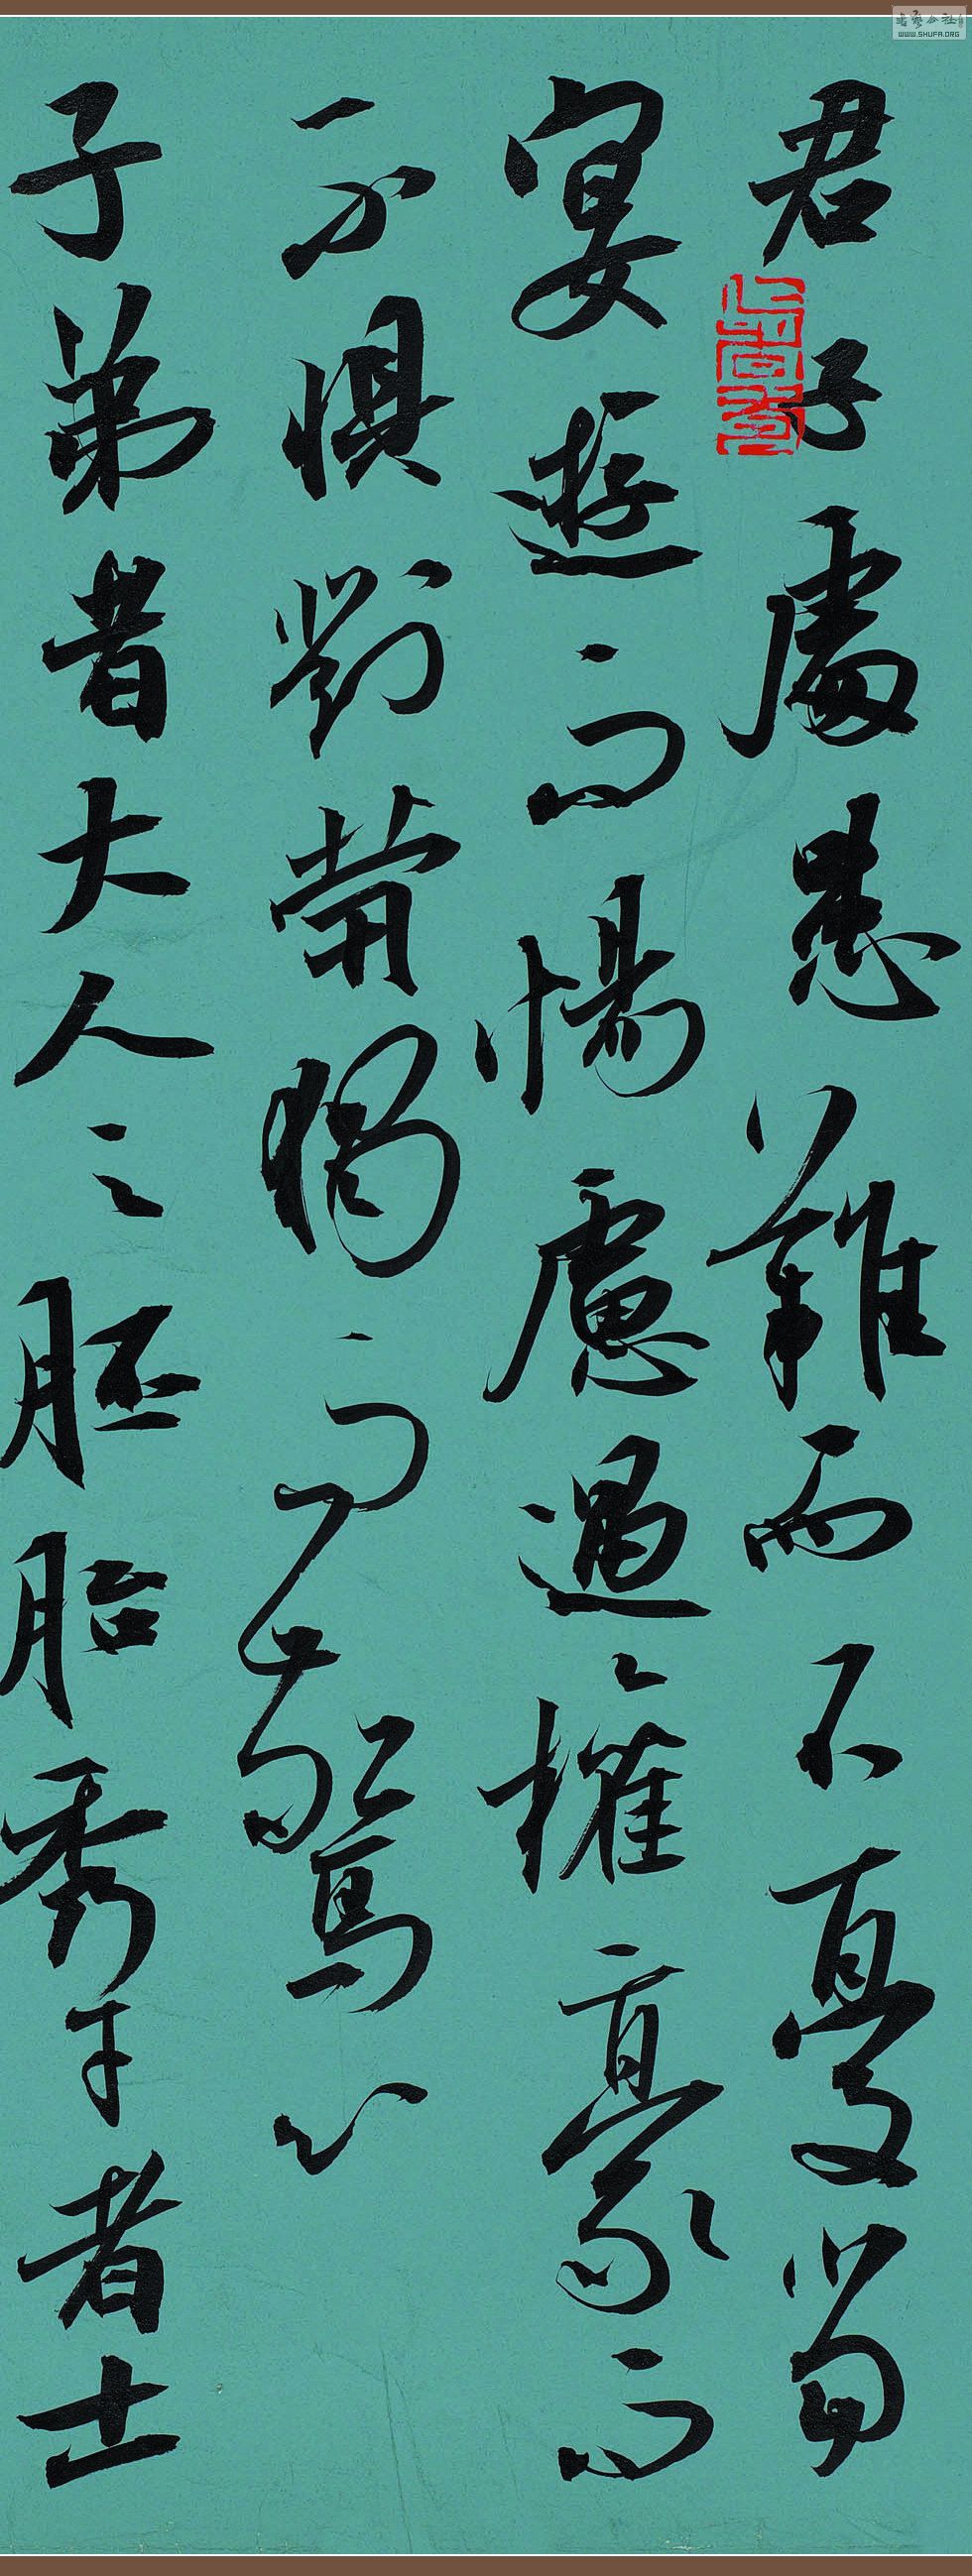 君子處患難而不憂當
宴遊而惕慮遇權豪而
不懼對煢獨而驚心
子弟者大人之胚胎秀才者士
WWW.SHUFA.ORG